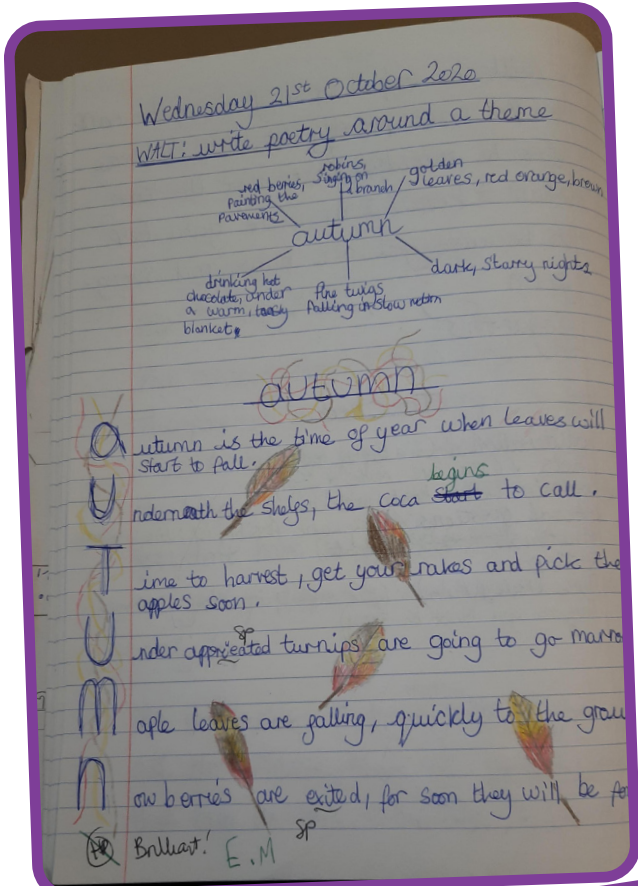 Wednesday 21st October 2020
WALT: write poetry around a theme
red berries,
painting the
pavements
robins,
singing on
a branch
golden
leaves, red orange, brown
autumn
drinking hot
chocolate, under
a warm, toasty
blanket.
fine twigs
falling in slow
dark, starry nights
autumn
autumn is the time of year when leaves will
start to fall.
underneath the shelfs, the coca start to call.
begins
Time to harvest, get your rakes and pick the
apples soon.
under appricated turnips are going to go
sp
maple leaves are falling, quickly to the
now berries are exited, for soon they will be
sp
Brilliant!
E.M